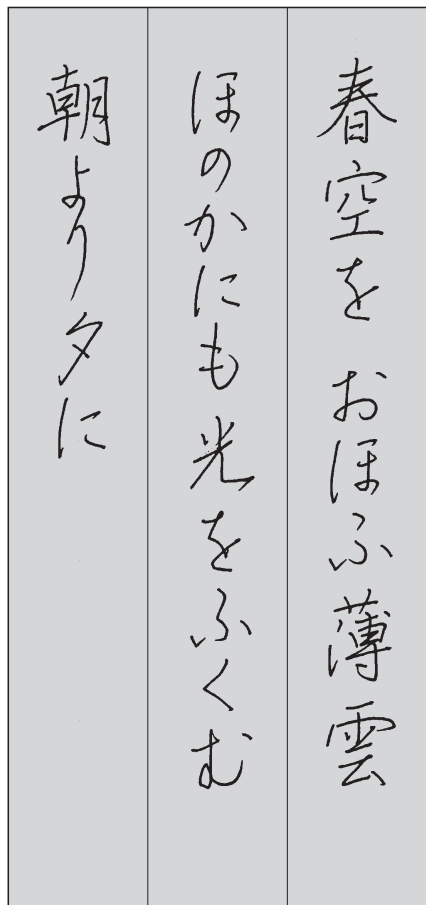 春空を おほふ薄雲
ほのかにも光をふくむ
朝より夕に